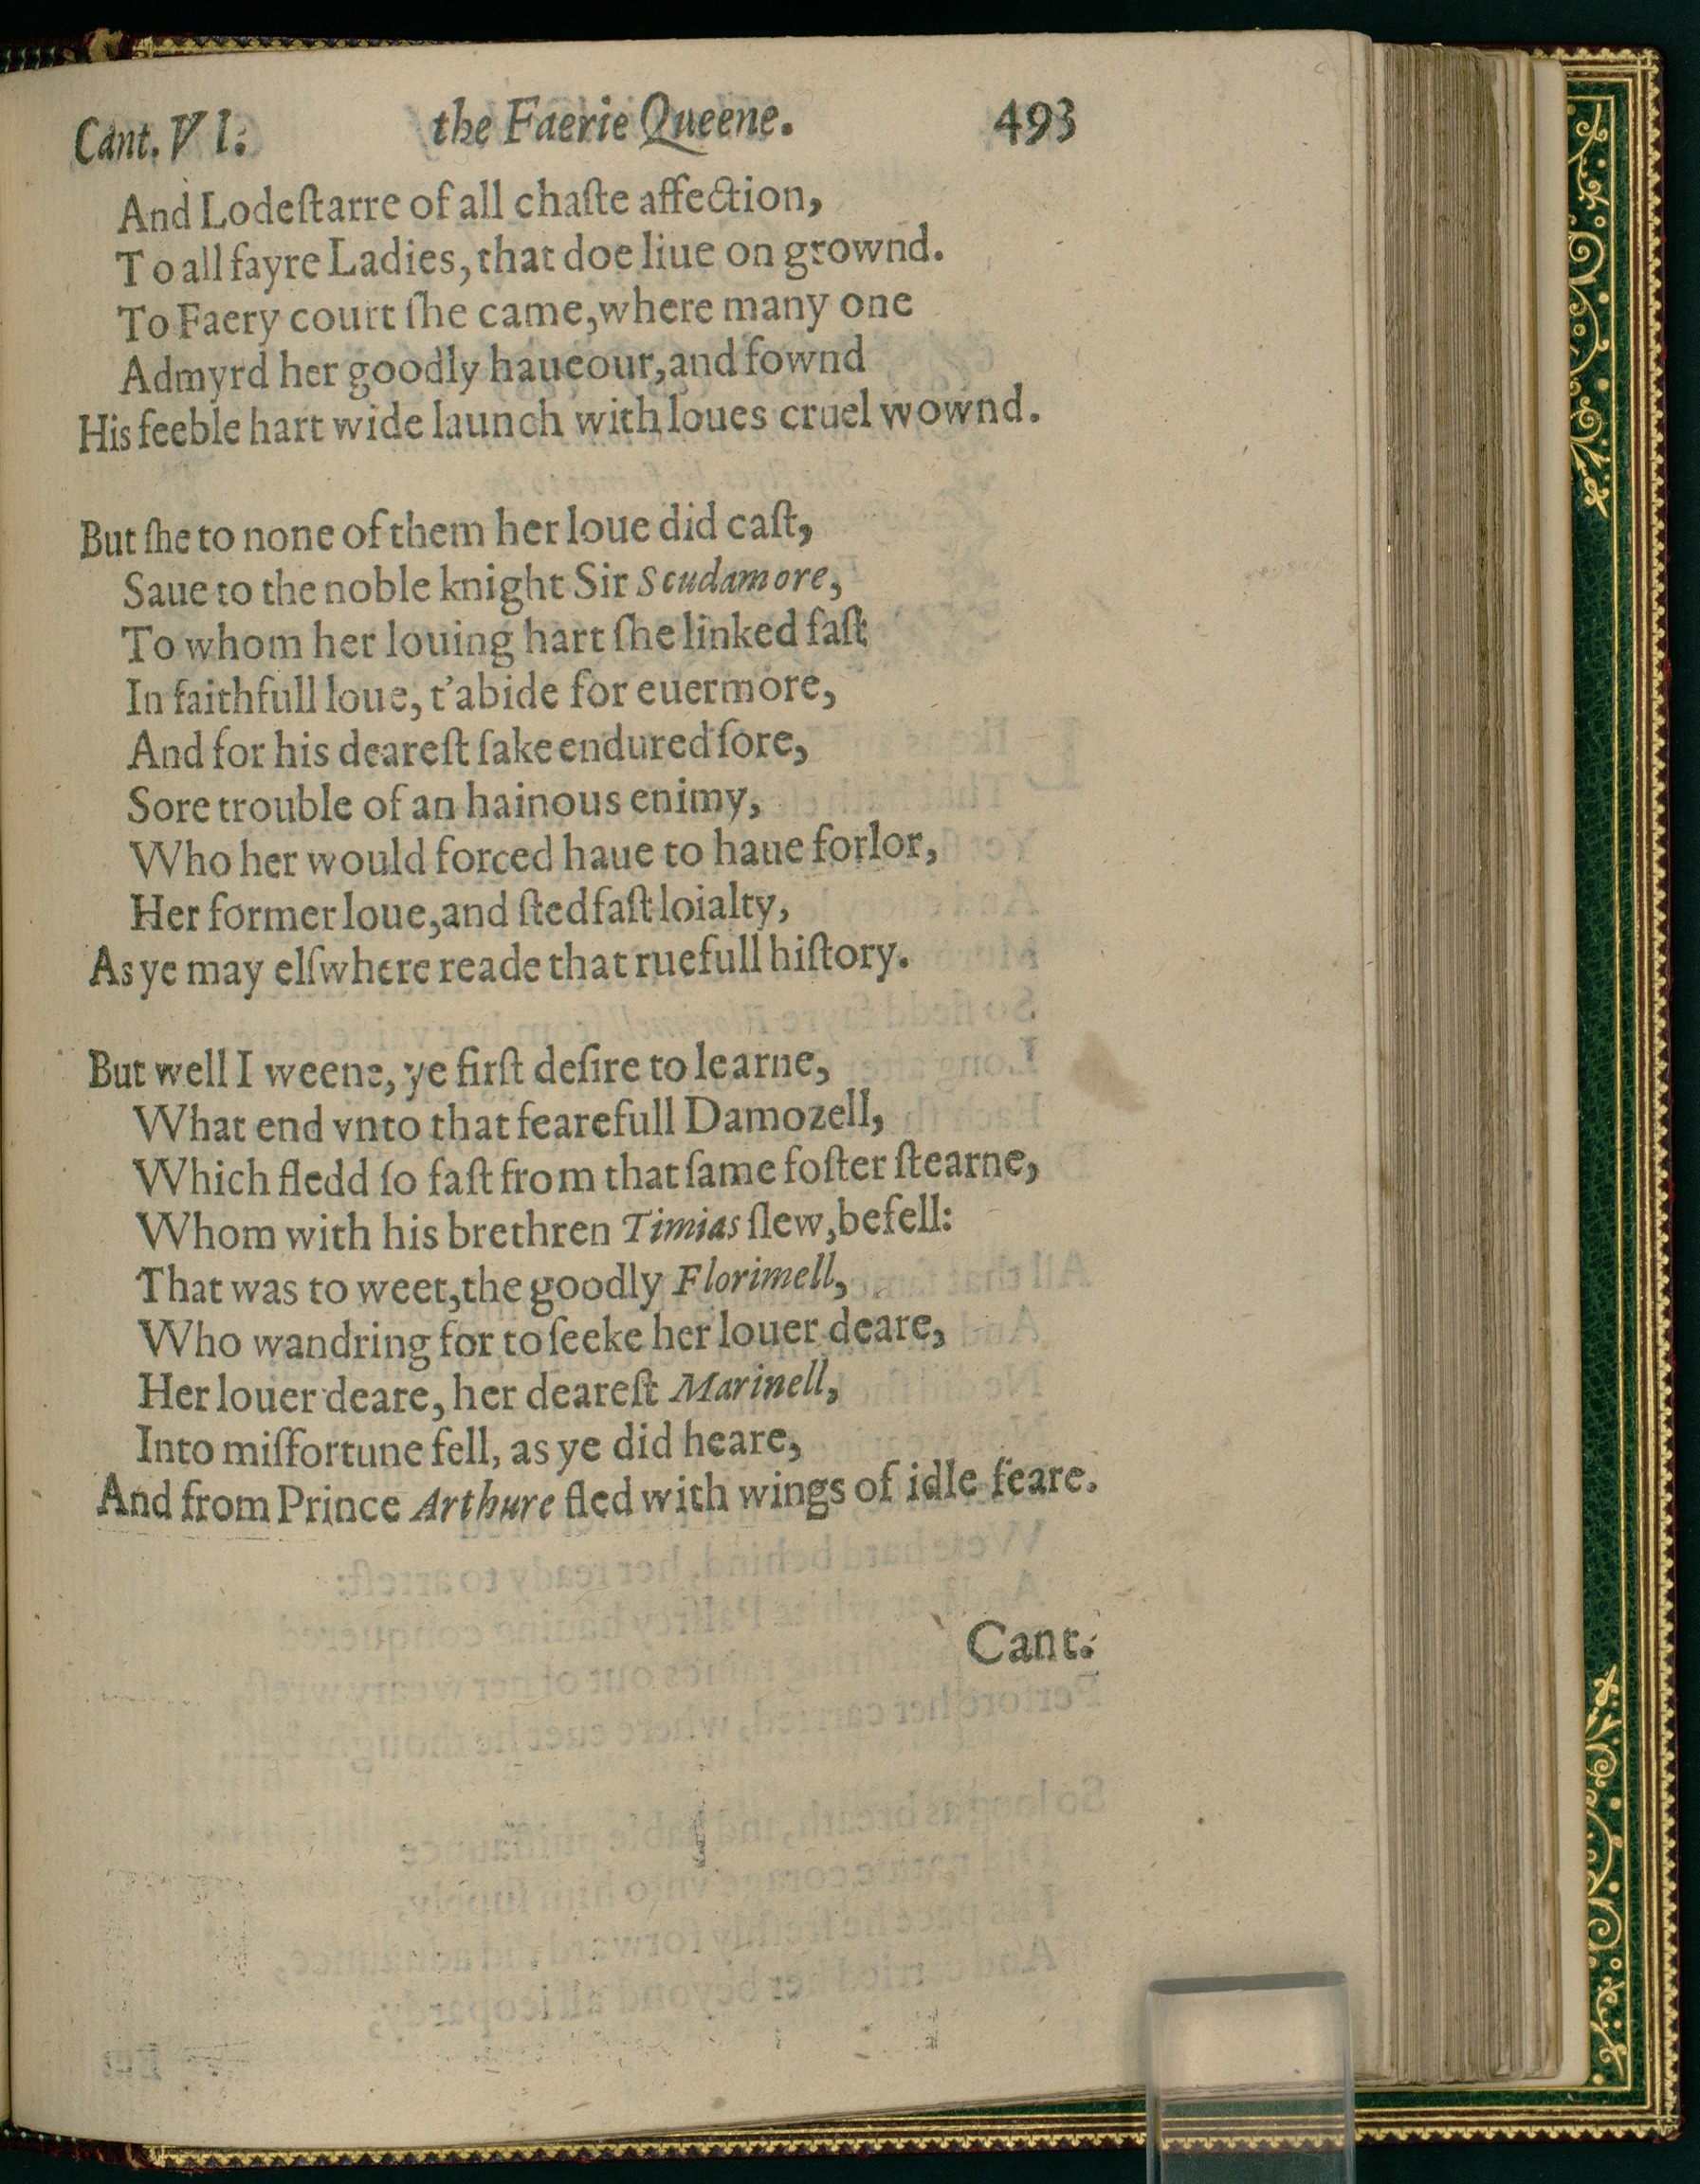 Cant. VI. the Faerie Queene. 493
And Lodeſtarre of all chaſte affection,
To all fayre Ladies, that doe liue on grownd.
To Faery court ſhe came, where many one
Admyrd her goodly haueour, and fownd
His feeble hart wide launch with loues cruel wownd.
But ſhe to none of them her loue did caſt,
Saue to the noble knight Sir Scudamore,
To whom her louing hart ſhe linked faſt
In faithfull loue, t'abide for euermore,
And for his deareſt ſake endured ſore,
Sore trouble of an hainous enimy,
Who her would forced haue to haue forlor,
Her former loue, and ſtedfaſt loialty,
As ye may elſwhere reade that ruefull hiſtory.
But well I weene, ye firſt deſire to learne,
What end vnto that fearefull Damozell,
Which fledd ſo faſt from that ſame foſter ſtearne,
Whom with his brethren Timias ſlew, befell:
That was to weet, the goodly Florimell,
Who wandring for to ſeeke her louer deare,
Her louer deare, her deareſt Marinell,
Into miſfortune fell, as ye did heare,
And from Prince Arthure fled with wings of idle feare.
Cant.